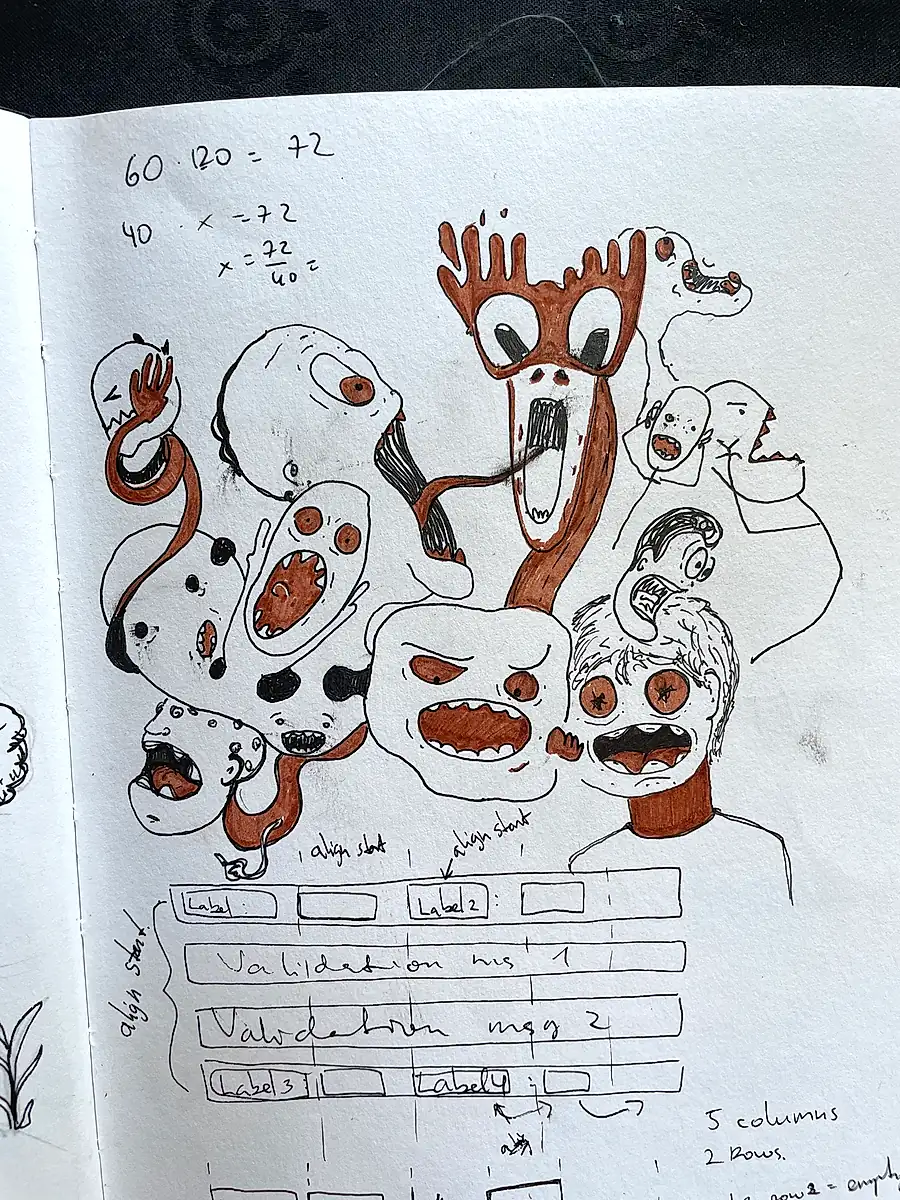 60 · 120 = 72
40 · x = 72
x = 72/40 =
align start
align start
Label : Label 2 :
align start
Validation ms 1
Validation msg 2
Label 3 : Label 4 :
5 columns
2 Rows.
row 2 = empty